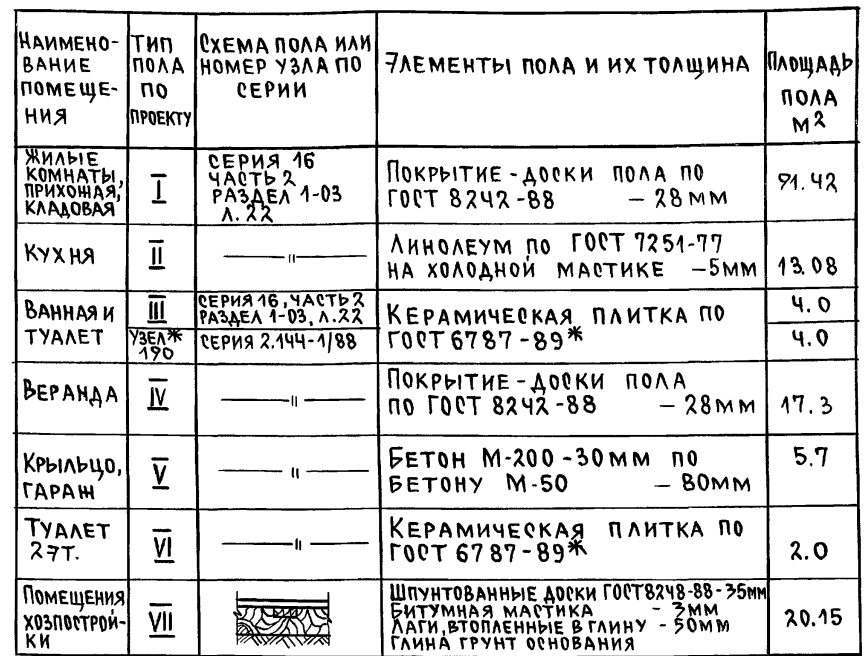 НАИМЕНО-
ВАНИЕ
ПОМЕЩЕ-
НИЯ
ТИП
ПОЛА
ПО
ПРОЕКТУ
СХЕМА ПОЛА ИЛИ
НОМЕР УЗЛА ПО
СЕРИИ
ЭЛЕМЕНТЫ ПОЛА И ИХ ТОЛЩИНА
ПЛОЩАДЬ
ПОЛА
М2
ЖИЛЫЕ
КОМНАТЫ,
ПРИХОЖАЯ,
КЛАДОВАЯ
I
СЕРИЯ 16
ЧАСТЬ 2
РАЗДЕЛ 1-03
Л. 22
ПОКРЫТИЕ - ДОСКИ ПОЛА ПО
ГОСТ 8242-88 - 28 ММ
91.42
КУХНЯ
II
— " —
ЛИНОЛЕУМ ПО ГОСТ 7251-77
НА ХОЛОДНОЙ МАСТИКЕ - 5ММ
13.08
ВАННАЯ И
ТУАЛЕТ
III
СЕРИЯ 16, ЧАСТЬ 2
РАЗДЕЛ 1-03, Л.22
УЗЕЛ*
190
СЕРИЯ 2.144-1/88
КЕРАМИЧЕСКАЯ ПЛИТКА ПО
ГОСТ 6787-89*
4.0
4.0
ВЕРАНДА
IV
— " —
ПОКРЫТИЕ - ДОСКИ ПОЛА
ПО ГОСТ 8242-88 - 28ММ
17.3
КРЫЛЬЦО,
ГАРАЖ
V
— " —
БЕТОН М-200 - 30ММ ПО
БЕТОНУ М-50 - 80ММ
5.7
ТУАЛЕТ
2ЭТ.
VI
— " —
КЕРАМИЧЕСКАЯ ПЛИТКА ПО
ГОСТ 6787-89*
2.0
ПОМЕЩЕНИЯ
ХОЗПОСТРОЙ-
КИ
VII
ШПУНТОВАННЫЕ ДОСКИ ГОСТ8248-88-35ММ
БИТУМНАЯ МАСТИКА - 3ММ
ЛАГИ, ВТОПЛЕННЫЕ В ГЛИНУ - 50ММ
ГЛИНА ГРУНТ ОСНОВАНИЯ
20.15